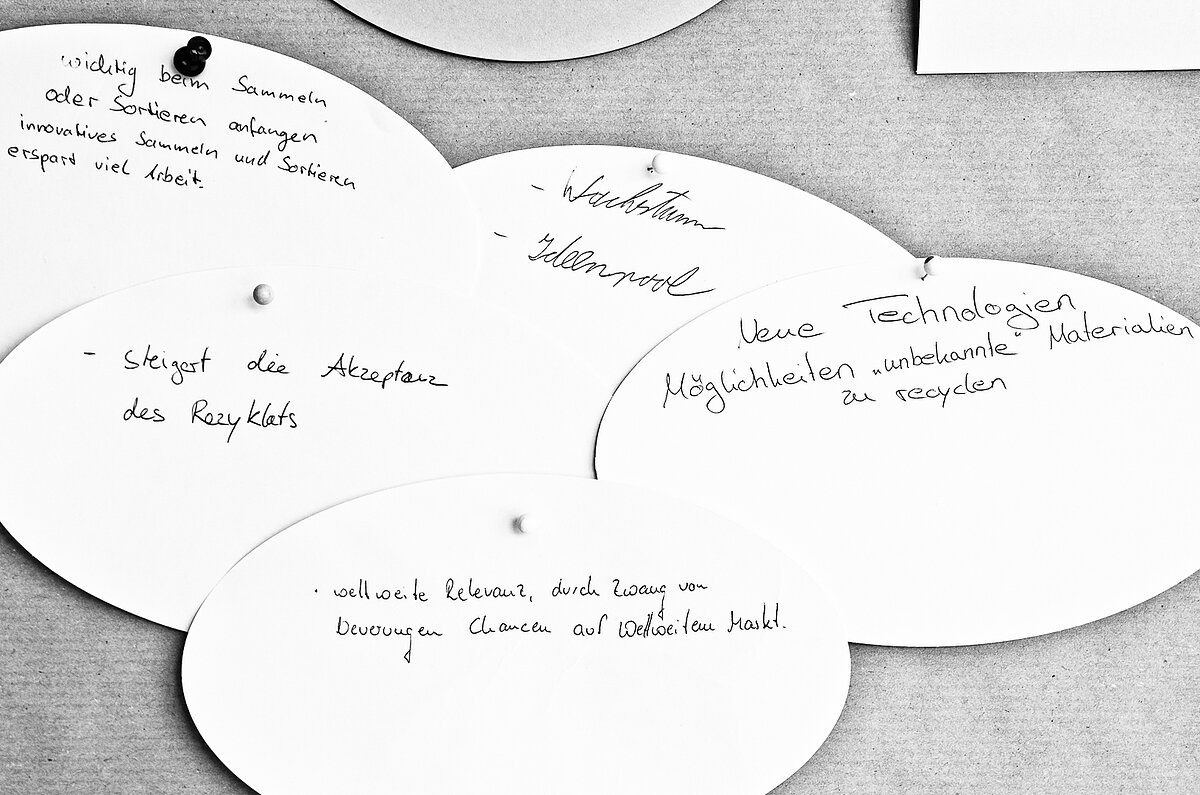 wichtig beim Sammeln
oder Sortieren anfangen
innovatives Sammeln und Sortieren
erspart viel Arbeit.
- Wachstum
- Ideenpool
- steigert die Akzeptanz
des Rezyklats
Neue Technologien
Möglichkeiten „unbekannte" Materialien
zu recyclen
· weltweite Relevanz, durch Zwang von
Neuerungen Chancen auf Weltweitem Markt.